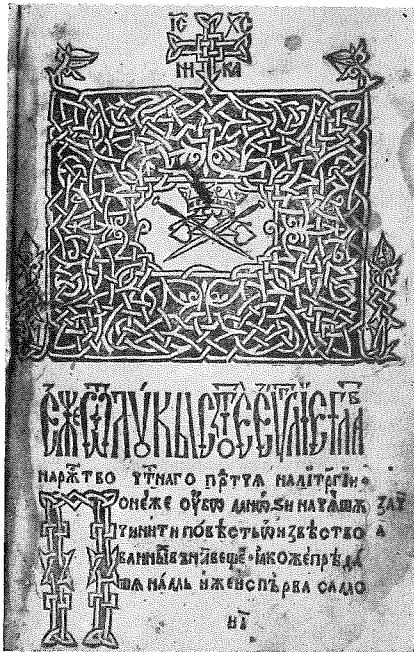 ІС ХС
НИ КА
Еже ѿ лукы ст҃ое еѵⷢлїе гла в҃
на рⷤтво чⷭтнаго прⷣтчѧ на литꙋргїи ·
Понеже оубѡ мнѡѕи начѧшѧ зач҃
чинити повѣсть ѡ извѣство а
ванныⷯ въ наⷭ вещеⷯ · ꙗкоже прѣда
шѧ намь иже испрьва само